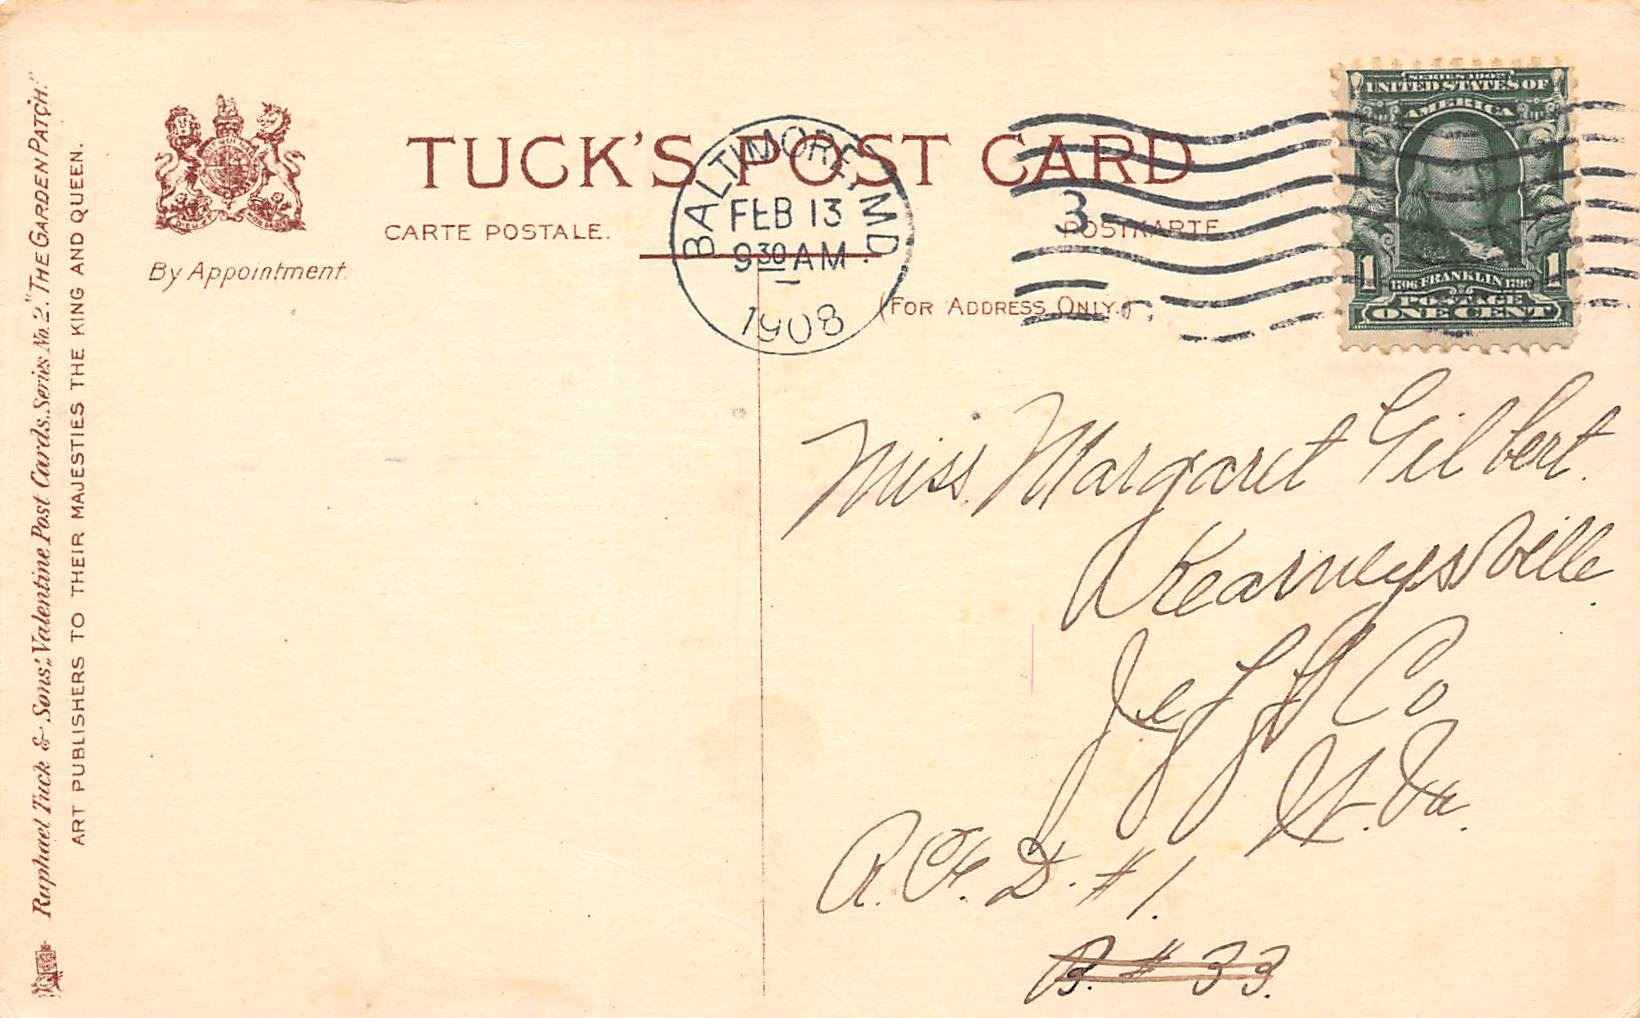 Raphael Tuck & Sons' "Valentine Post Cards, Series No. 2." "THE GARDEN PATCH."
ART PUBLISHERS TO THEIR MAJESTIES THE KING AND QUEEN.
By Appointment.
TUCK'S POST CARD
CARTE POSTALE.
POSTKARTE
(FOR ADDRESS ONLY.)
BALTIMORE, MD.
FEB 13
9 30 AM
1908
3
SERIES 1902
UNITED STATES OF
AMERICA
1 1
1706 FRANKLIN 1790
POSTAGE
ONE CENT
Miss. Margaret Gilbert.
Kearneysville.
Jeff Co
W. Va.
R. F. D. #1.
B. # 33.